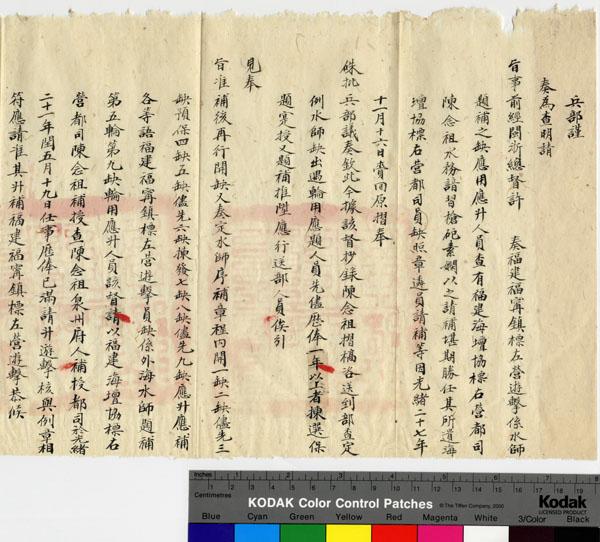 兵部謹
奏為查明請
旨事前經閩浙總督許 奏福建福寧鎮標左營遊擊係水師
題補之缺應用應升人員查有福建海壇協標右營都司
陳念祖水務諳習槍砲素嫻以之請補堪期勝任其所遺海
壇協標右營都司員缺照章遴員請補等因光緒二十七年
十一月十六日賚回原摺奉
硃批兵部議奏欽此今據該督抄錄陳念祖摺稿咨送到部查定
例水師缺出遇輪用應題人員先儘歷俸一年以上者揀選保
題寔授又題補推陞應行送部人員俟引
見奉
旨准補後再行開缺又奏定水師序補章程內開一缺二缺儘先三
缺預保四缺五缺儘先六缺揀發七缺八缺儘先九缺應升應補
各等語福建福寧鎮標左營遊擊員缺係外海水師題補
第五輪第九缺輪用應升人員該督請以福建海壇協標右
營都司陳念祖補授查陳念祖泉州府人補授都司於光緒
二十一年閏五月十九日任事歷俸已滿請升遊擊核與例章相
符應請准其升補福建福寧鎮標左營遊擊恭候
Inches 1 2 3 4 5 6 7
Centimetres 1 2 3 4 5 6 7 8 9 10 11 12 13 14 15 16 17 18 19
KODAK Color Control Patches © The Tiffen Company, 2000 Kodak
LICENSED PRODUCT
Blue Cyan Green Yellow Red Magenta White 3/Color Black